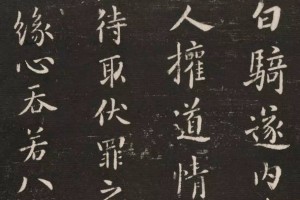 白騎遂内
人擁道情
待取伏罪之
緣心吞若八